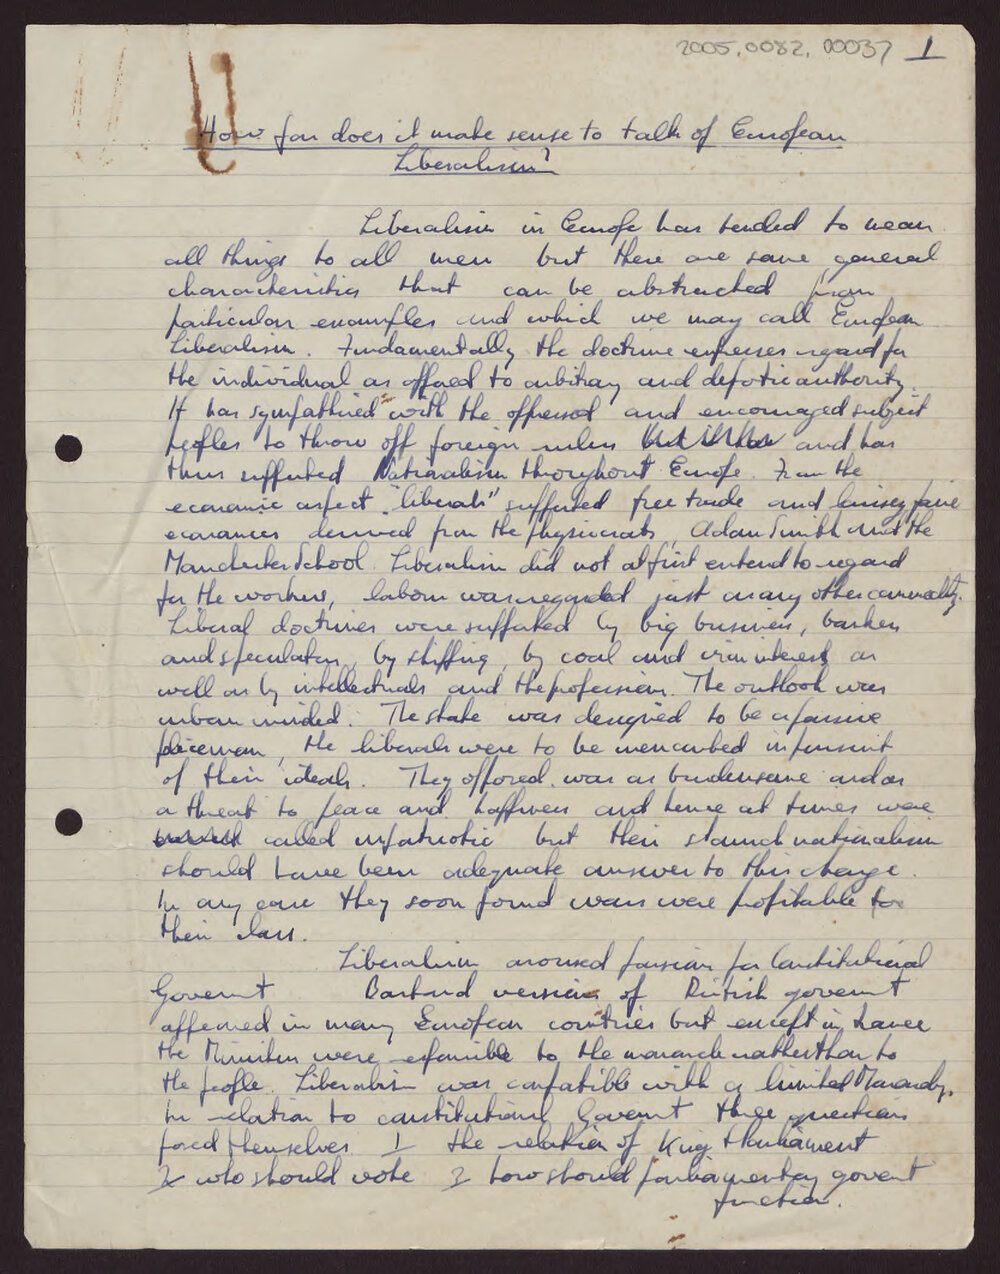 2005.0082.00037 1
How far does it make sense to talk of European
Liberalism?
Liberalism in Europe has tended to mean
all things to all men but there are some general
characteristics that can be abstracted from
particular examples and which we may call European
Liberalism. Fundamentally the doctrine expresses regard for
the individual as opposed to arbitary and despotic authority.
It has sympathised with the oppressed and encouraged subject
peoples to throw off foreign rulers and has
thus supported Nationalism throughout Europe. From the
economic aspect "liberals" supported free trade and laissez faire
economics derived from the physiocrats, Adam Smith and the
Manchester School. Liberalism did not at first extend to regard
for the workers, labour was regarded just as any other commodity.
Liberal doctrines were supported by big business, bankers
and speculators, by shipping, by coal and iron interests as
well as by intellectuals and the professions. The outlook was
urban minded. The state was designed to be a passive
policeman, the liberals were to be unencumbed in pursuit
of their ideals. They opposed war as burdensome and as
a threat to peace and happiness and hence at times were
called unpatriotic but their staunch nationalism
should have been adequate answer to this charge.
In any case they soon found wars were profitable to
their class.
Liberalism aroused passion for Constitutional
Government. Bastard versions of British goverment
appeared in many European countries but except in France
the Ministers were responsible to the monarch rather than to
the people. Liberalism was compatible with a limited Monarchy.
In relation to constitutional Goverment three questions
posed themselves 1 the relation of King & Parliament
2 who should vote 3 how should parliamentary goverment
function.